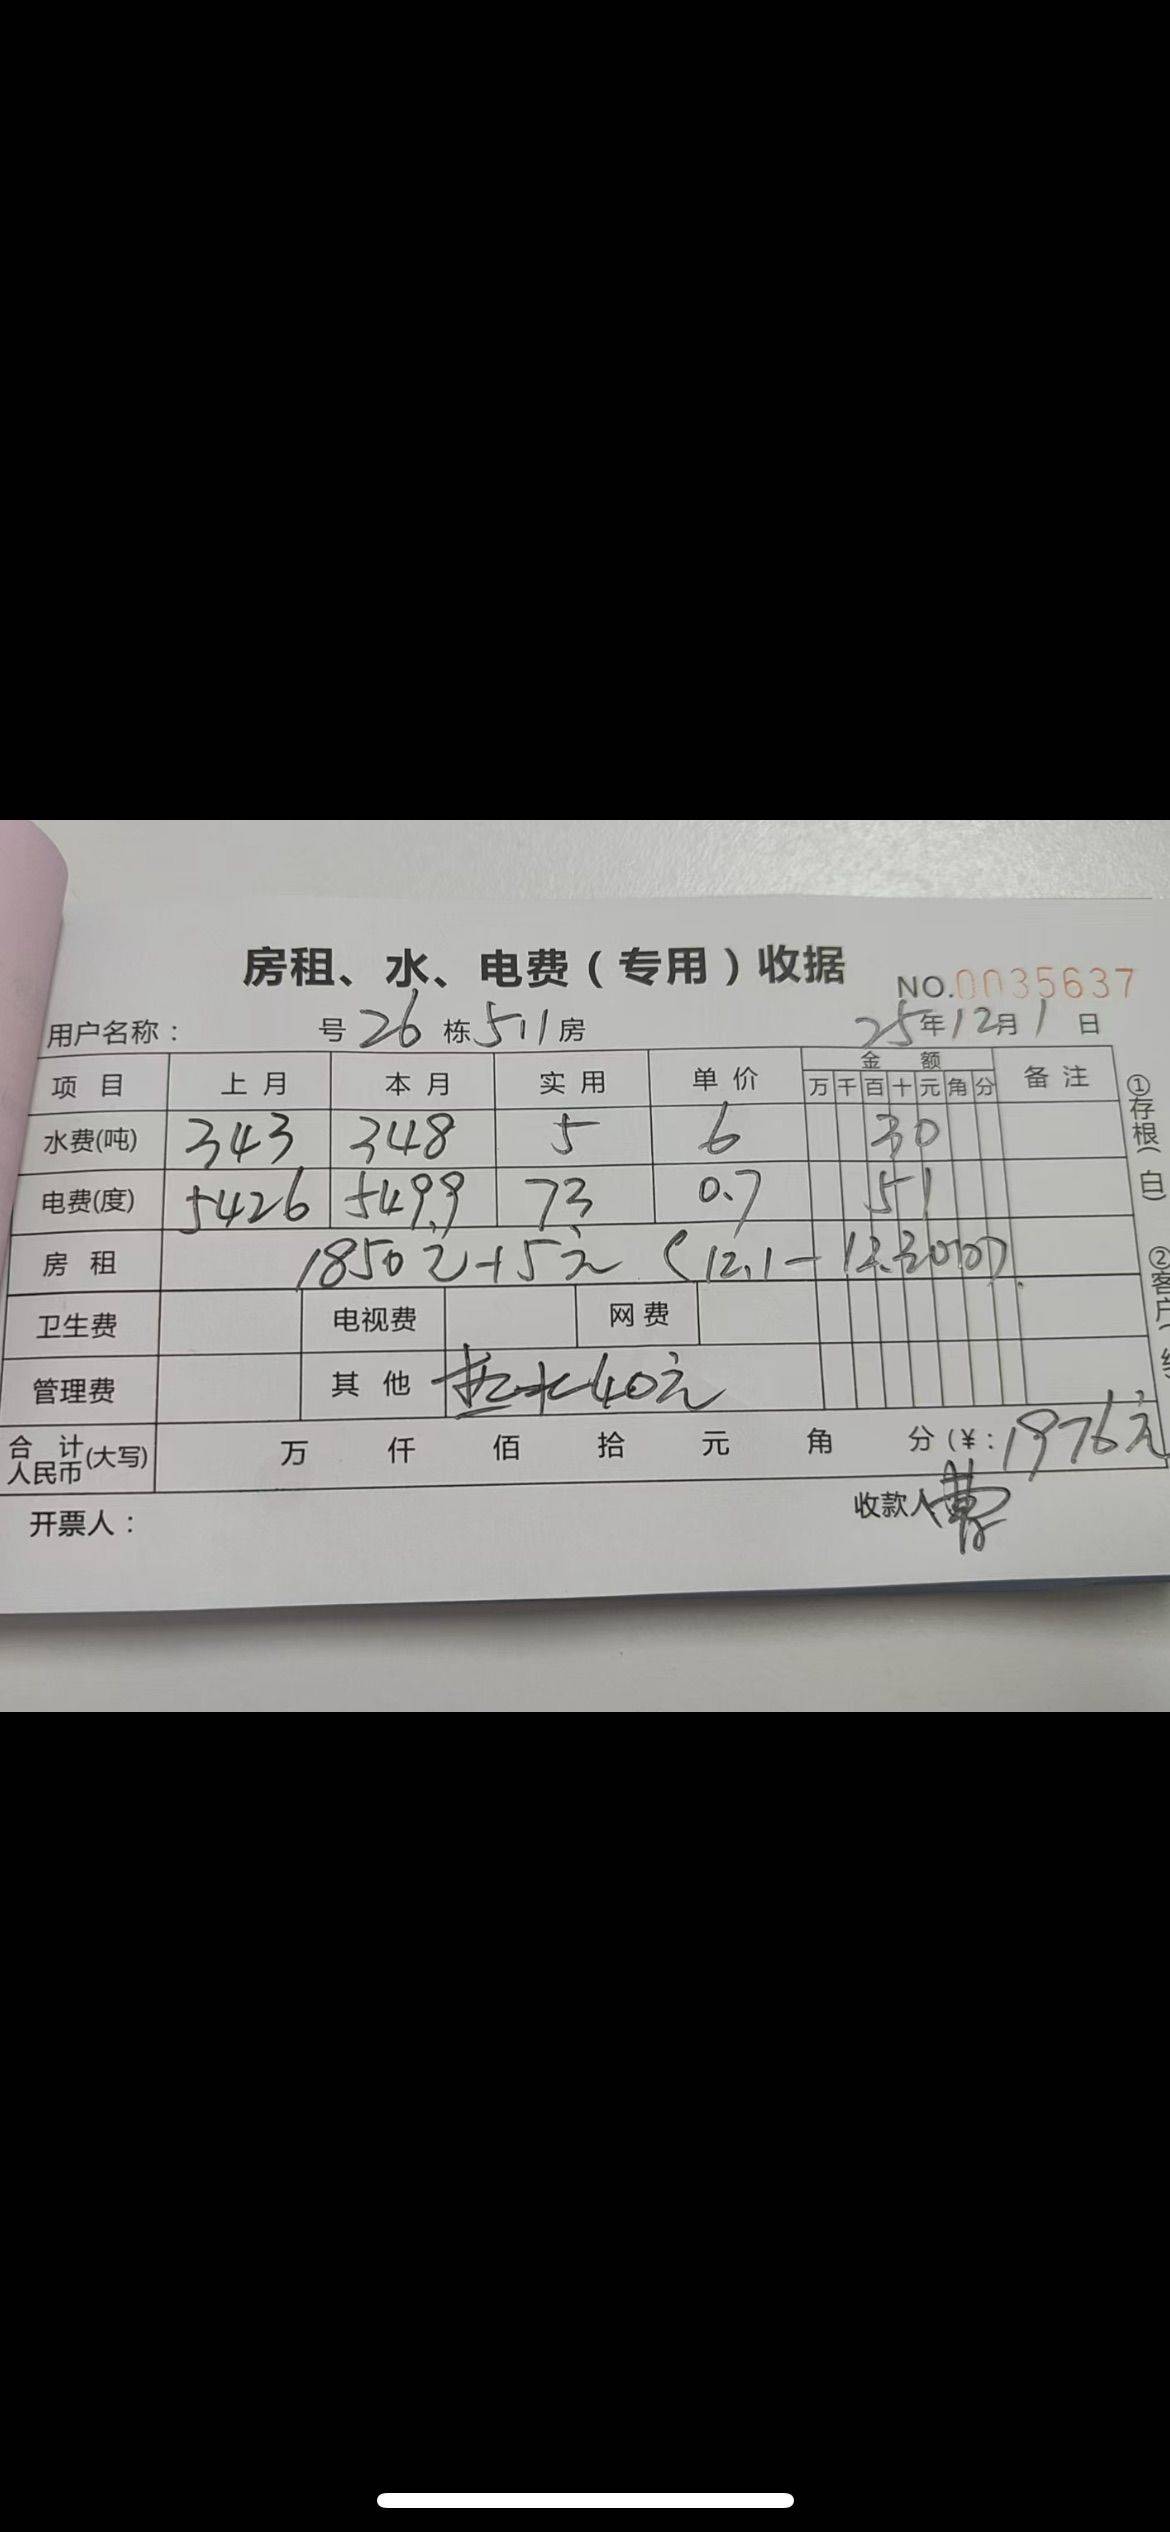 房租、水、电费(专用)收据
NO.0035637
用户名称: 号 26 栋 511 房 25年12月1日
项目 上月 本月 实用 单价 金额 备注
万 千 百 十 元 角 分
水费(吨) 343 348 5 6 30
电费(度) 5426 5499 73 0.7 51
房租 1850元+5元 (12.1-12.30日).
卫生费 电视费 网费
管理费 其他 热水40元
合计人民币(大写) 万 仟 佰 拾 元 角 分(¥:1976元
开票人: 收款人
①存根(白)
②客户(